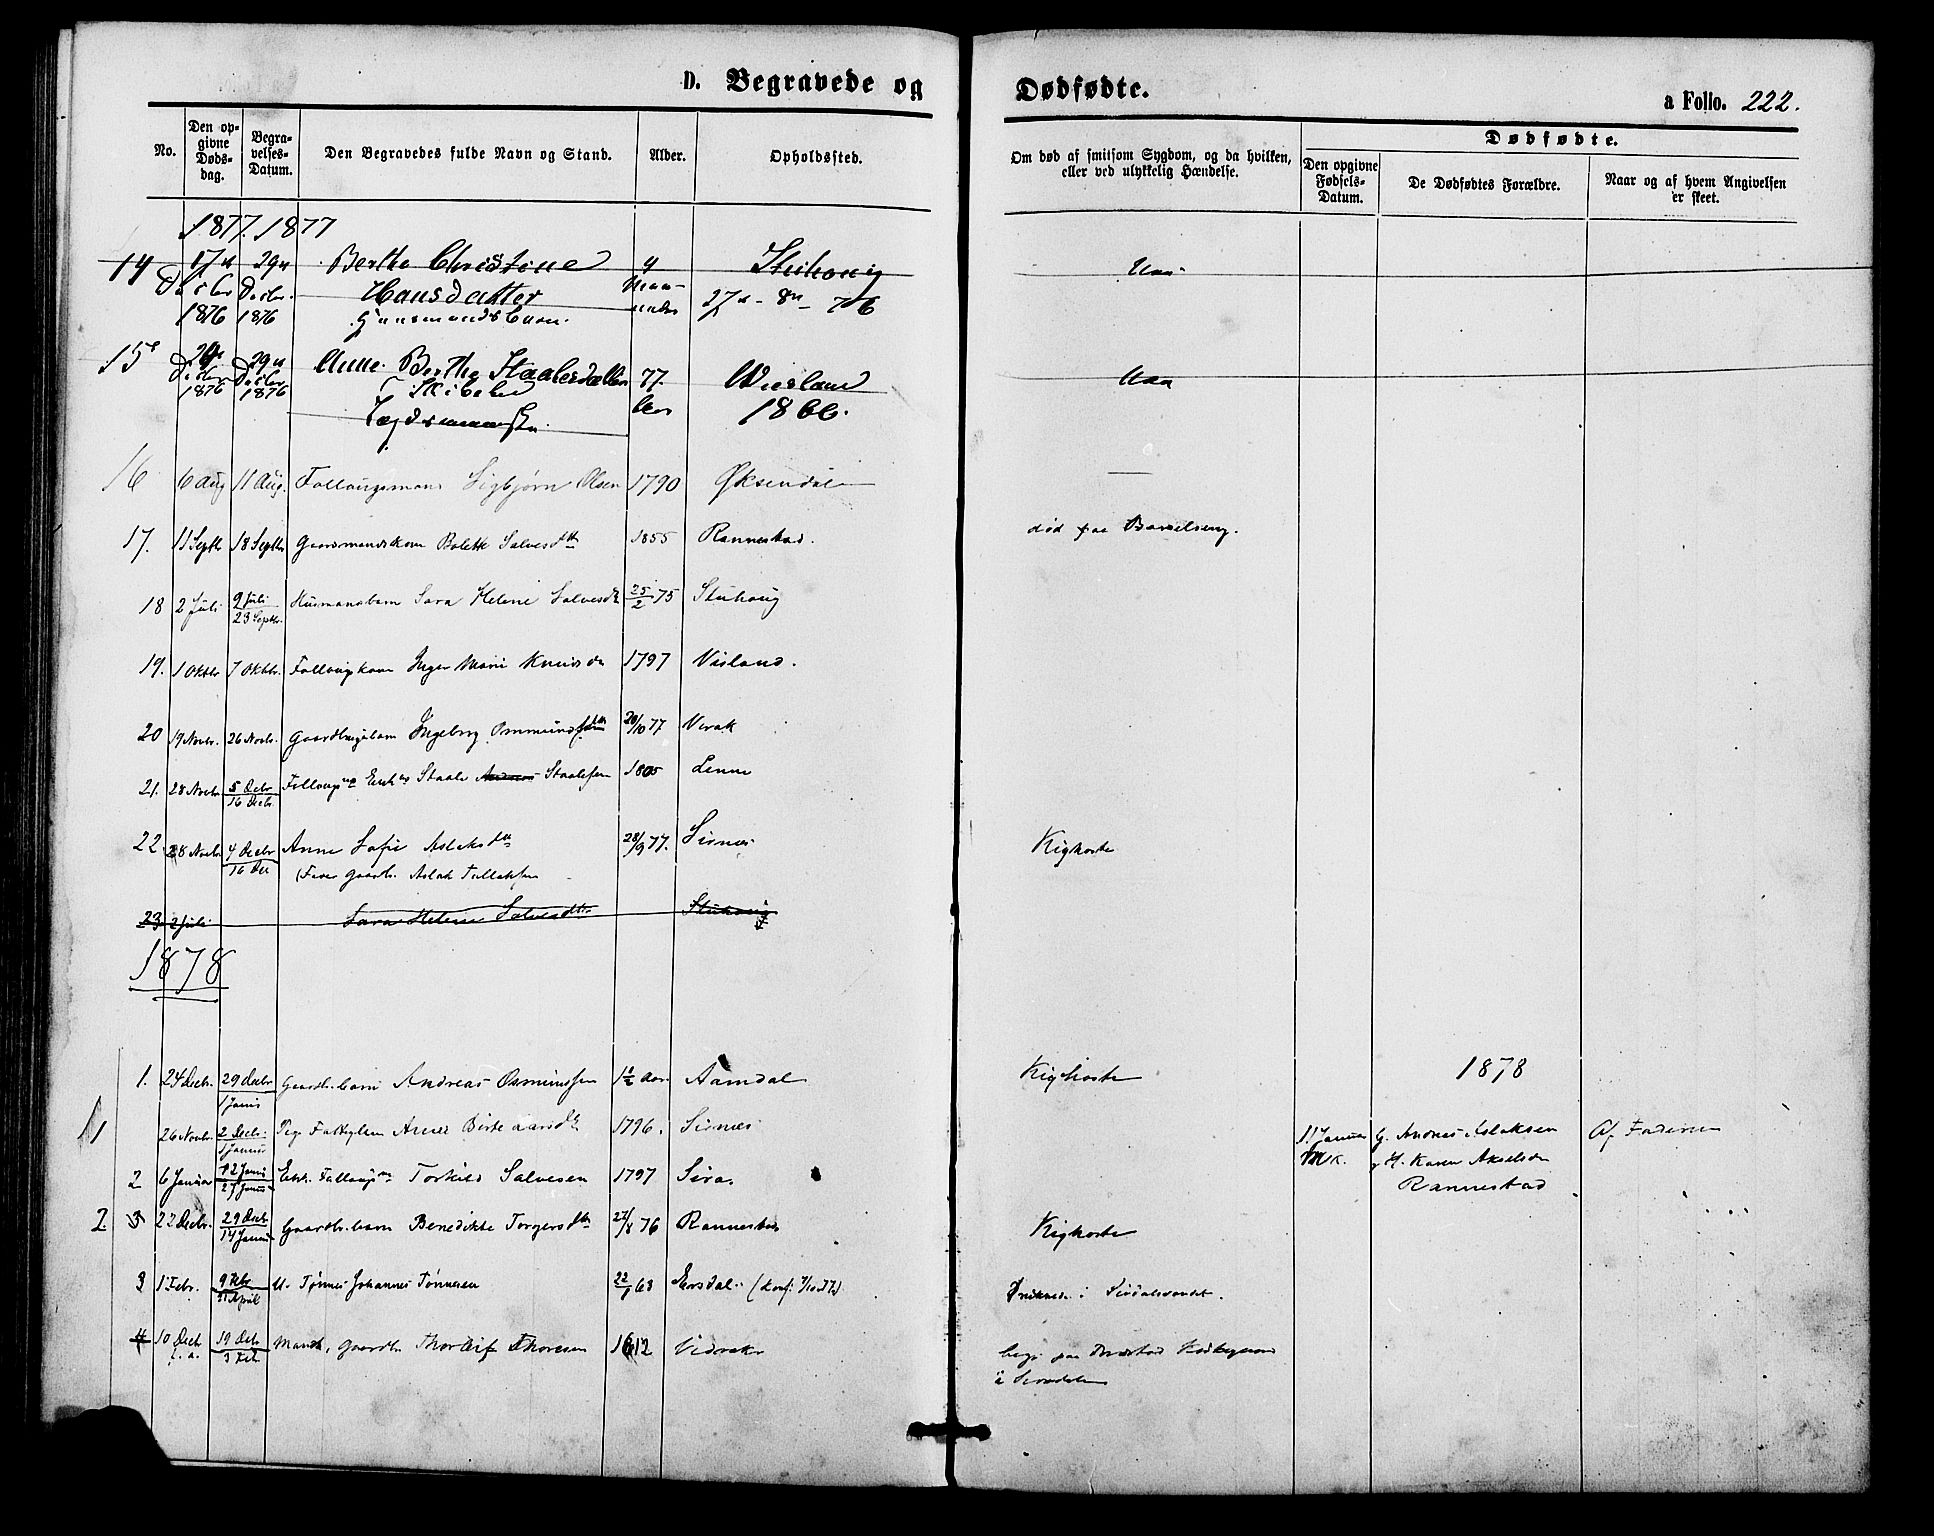 D. Begravede og Dødfødte. a Folio. 222.
No. Den opgivne Dødsdag. Begravelses-Datum. Den Begravedes fulde Navn og Stand. Alder. Opholdssted. Om død af smitsom Sygdom, og da hvilken, eller ved ulykkelig Hændelse. Dødfødte.
Den opgivne Fødsels-Datum. De Dødfødtes Forældre. Naar og af hvem Angivelsen er skeet.
1877. 1877
14 17de 29de Berthe Christine 4 Stuhoug
Decbr Decbr. Hansdatter Maa- 27de - 8de - 76
1876 1876 Huusmandsbarn. neder
15 29de Anne Berthe Staalesdatter 77 Visland
Decbr Decbr
1876 1876 Lægdsmand Aar 1866.
16 6 Aug 11 Aug. Follaugsmand Sigbjørn Olsen 1790 Øksendal —
17. 11 Septbr 18 Septbr Gaardmandskone Bolette Salvesdtr 1855 Rannestad. død paa Barselseng.
18 2 Juli 9 Juli Husmandsbarn Sara Helene Salvesdtr 25/2 75 Stuhoug
23 Septbr.
19. 1 Oktbr 7 Oktbr. Follaugskone Inger Marie 1797 Visland.
20 19 Novbr. 26 Novbr. Ingeborg Ommundsdtr 20/10 77 Virak
21. 28 Novbr 5 Decbr Staale Andreas Staalesen 1805 Lenne
16 Decbr.
22. 28 Novbr 4 Decbr Anne Sofie Aslaksdtr 28/9 77. Sirnes Kighoste
16 Dec (Faer Gaardbr. Aslak Tallaksen
23 2 Juli Sara Helene Salvesdtr Stuhoug
1878
1. 24 Decbr. 29 Decbr Gaardbr. barn Andreas Osmundsen 1½ Aar Aamdal Kighoste 1878
1 Janur
1 26 Novbr. 2 Decbr. Pige Fattiglem Anne Birte 1796. Sirnes 11 Januar G. Andreas Aslaksen Af Faderen
1 Januar M.K. g H. Karen
2 6 Januar 12 Janur Torkild Salvesen 1797 Sira. Rannestad
27 Januar
2. 3 22 Decbr. 29 Decbr Gaardbr. barn Benedikte Torgersdtr 27/8 76 Rannestad Kighoste
14 Januar
3 1 Febr. 9 Febr U. Tønnes Johannes Tønnesen 22/1 63 Ersdal. Druknede i Sirdalsvandet.
April
4 10 Decbr 19 Decbr Mand, Gaardbr. Thorleif Thoresen 1812 Vidrak begr. paa
f. a. 3 Feb. i Sirdalen